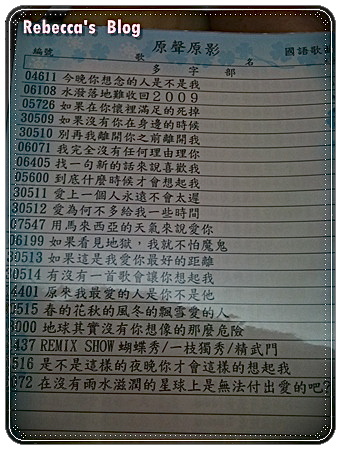 Rebecca's Blog
原聲原影
國語歌
編號 歌名
多字部
04611 今晚你想念的人是不是我
06108 水潑落地難收回2009
05726 如果在你懷裡滿足的死掉
30509 如果沒有你在身邊的時候
30510 別再我離開你之前離開我
06071 我完全沒有任何理由理你
06405 找一句新的話來說喜歡我
05600 到底什麼時候才會想起我
30511 愛上一個人永遠不會太遲
30512 愛為何不多給我一些時間
07547 用馬來西亞的天氣來說愛你
06199 如果看見地獄，我就不怕魔鬼
30513 如果這是我愛你最好的距離
30514 有沒有一首歌會讓你想起我
4401 原來我最愛的人是你不是他
0515 春的花秋的風冬的飄雪愛的人
000 地球其實沒有你想像的那麼危險
437 REMIX SHOW 蝴蝶秀/一枝獨秀/精武門
516 是不是這樣的夜晚你才會這樣的想起我
72 在沒有雨水滋潤的星球上是無法付出愛的吧?